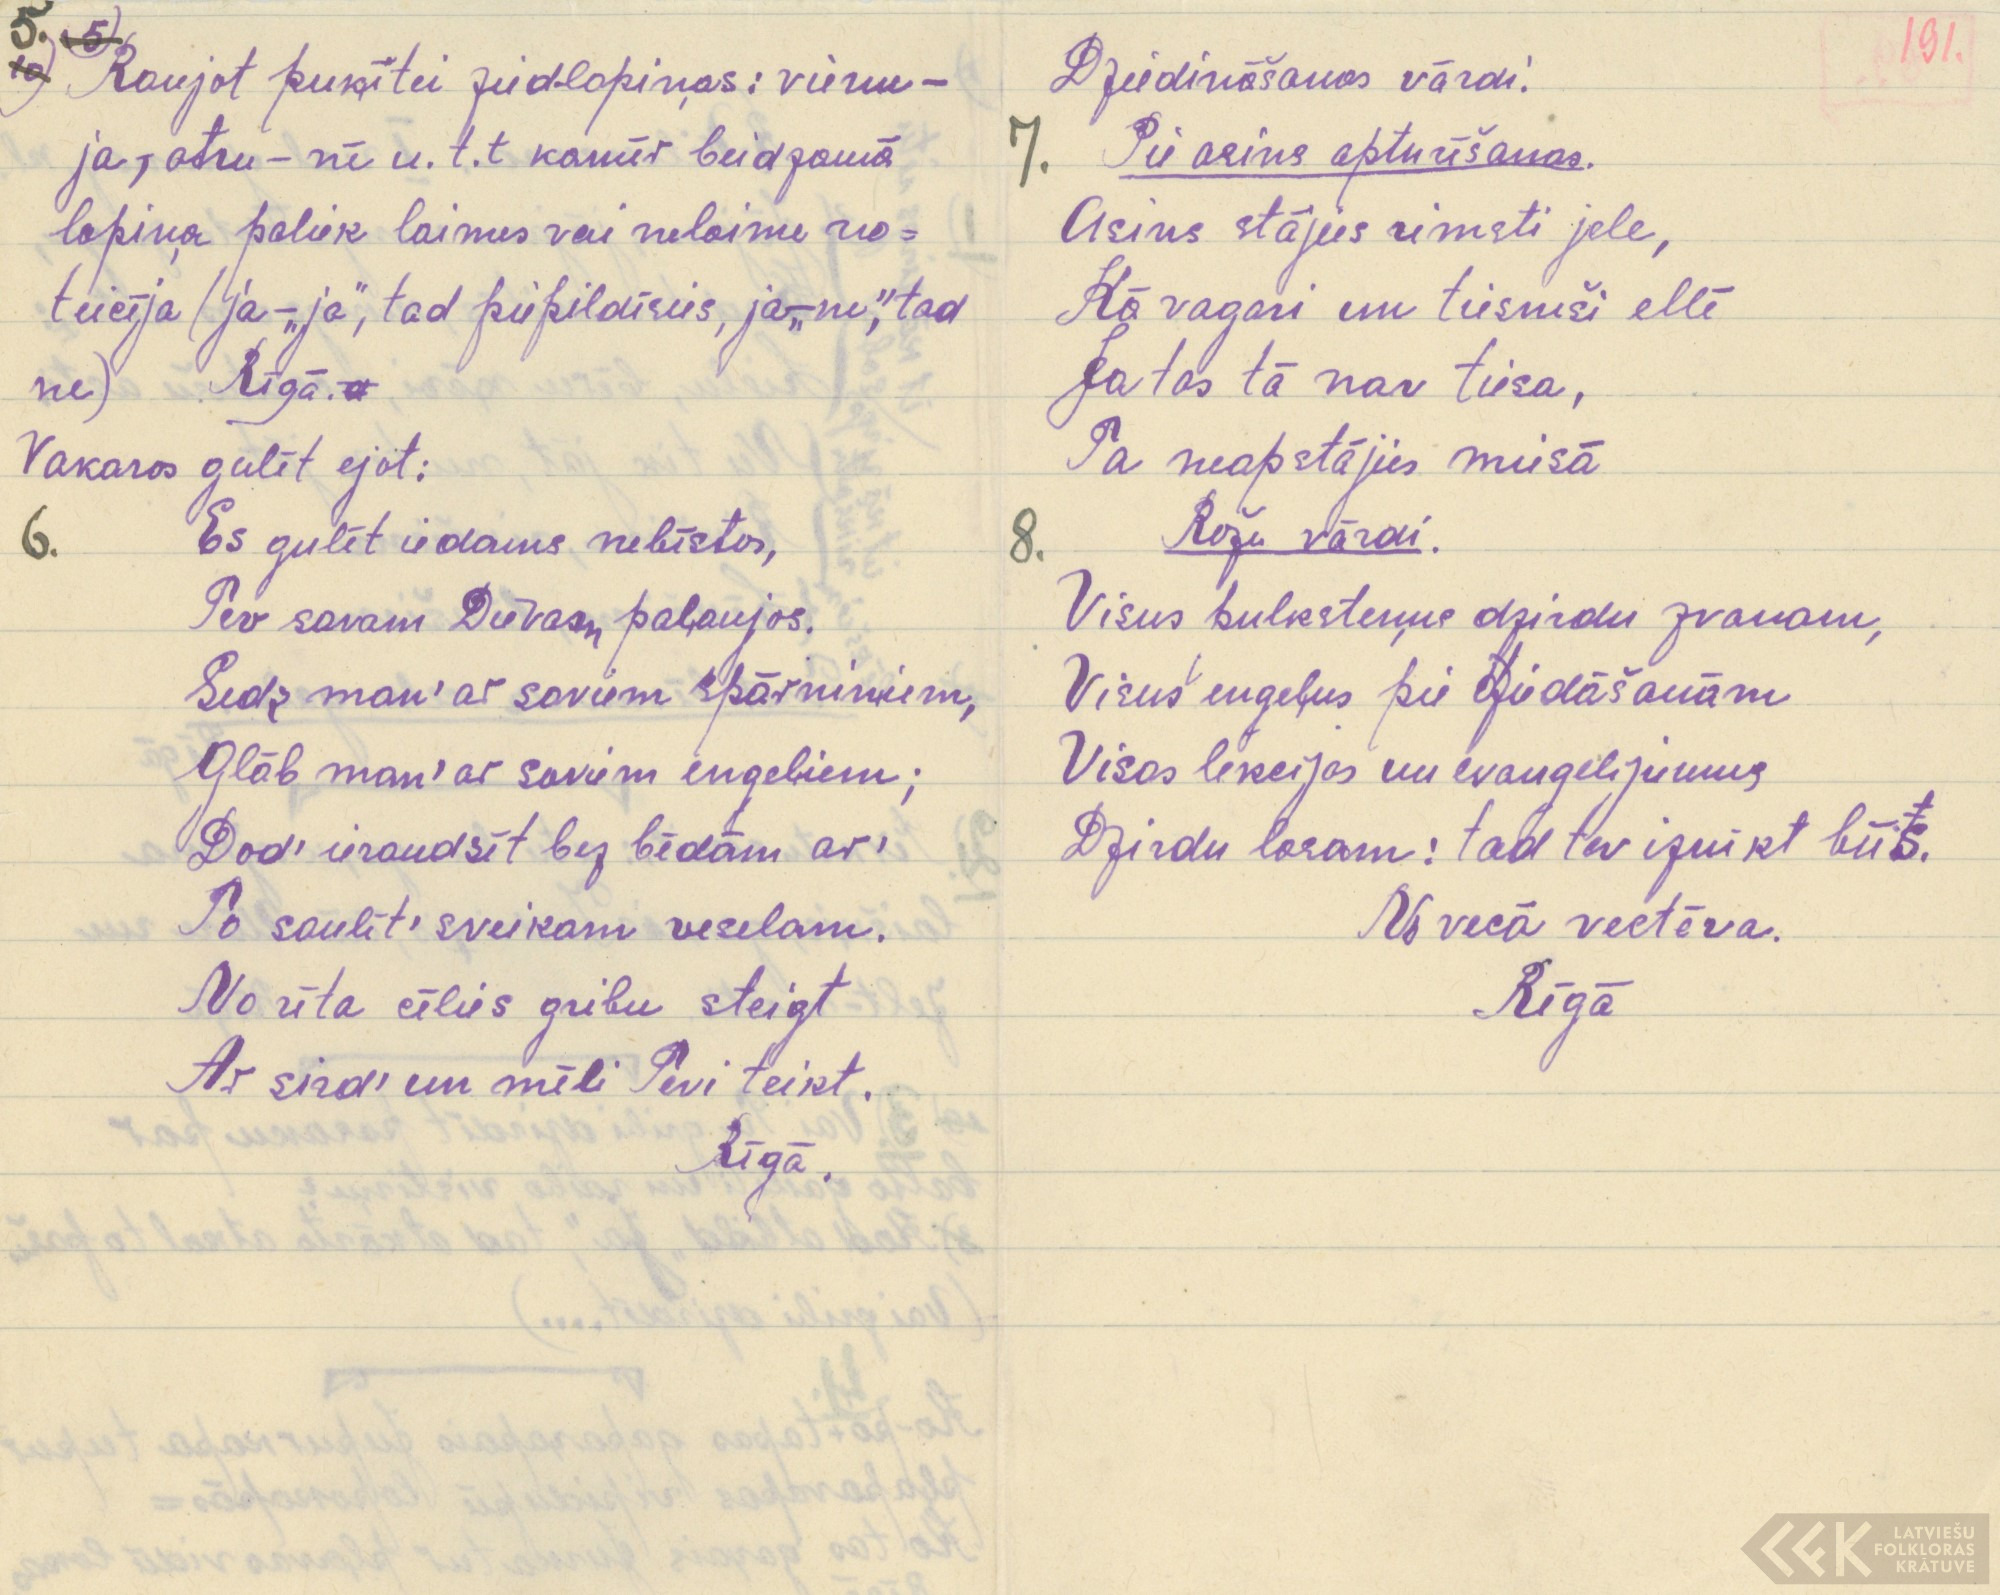 5.
Raujot puķītei ziedlapiņas: vienu –
ja, otru – nē u. t. t kamēr beidzamā
lapiņa paliek laimes vai nelaime no=
teicēja (ja – „ja”, tad piepildīsies, ja – „ne”, tad
ne) Rīgā.
Vakaros gulēt ejot:
6. Es gulēt iedams nebīstos,
Tev savam Dievam paļaujos.
Sedz man' ar saviem spārniņiem,
Glāb man' ar saviem eņģeļiem;
Dod' ieraudsīt bez bēdām ar'
To saulīt' sveikam veselam.
No rīta cēlies gribu steigt
Ar sird' un mēli Tevi teikt.
Rīgā.
191.
Dziedināšanas vārdi.
7. Pie asins apturēšanas.
Asins stājies rimsti jele,
Kā vagari un tiesneši ellē
Ja tas tā nav tiesa,
Ta neapstājies miesā
8. Rožu vārdi.
Visus pulksteņus dzirdu zvanam,
Visus eņģeļus pie dziedāšanām
Visas lekcijas un evaņģēlijumus
Dzirdu lasam: tad tev iznīkt būs.
No vecā vectēva.
Rīgā
LATVIEŠU
FOLKLORAS
KRĀTUVE